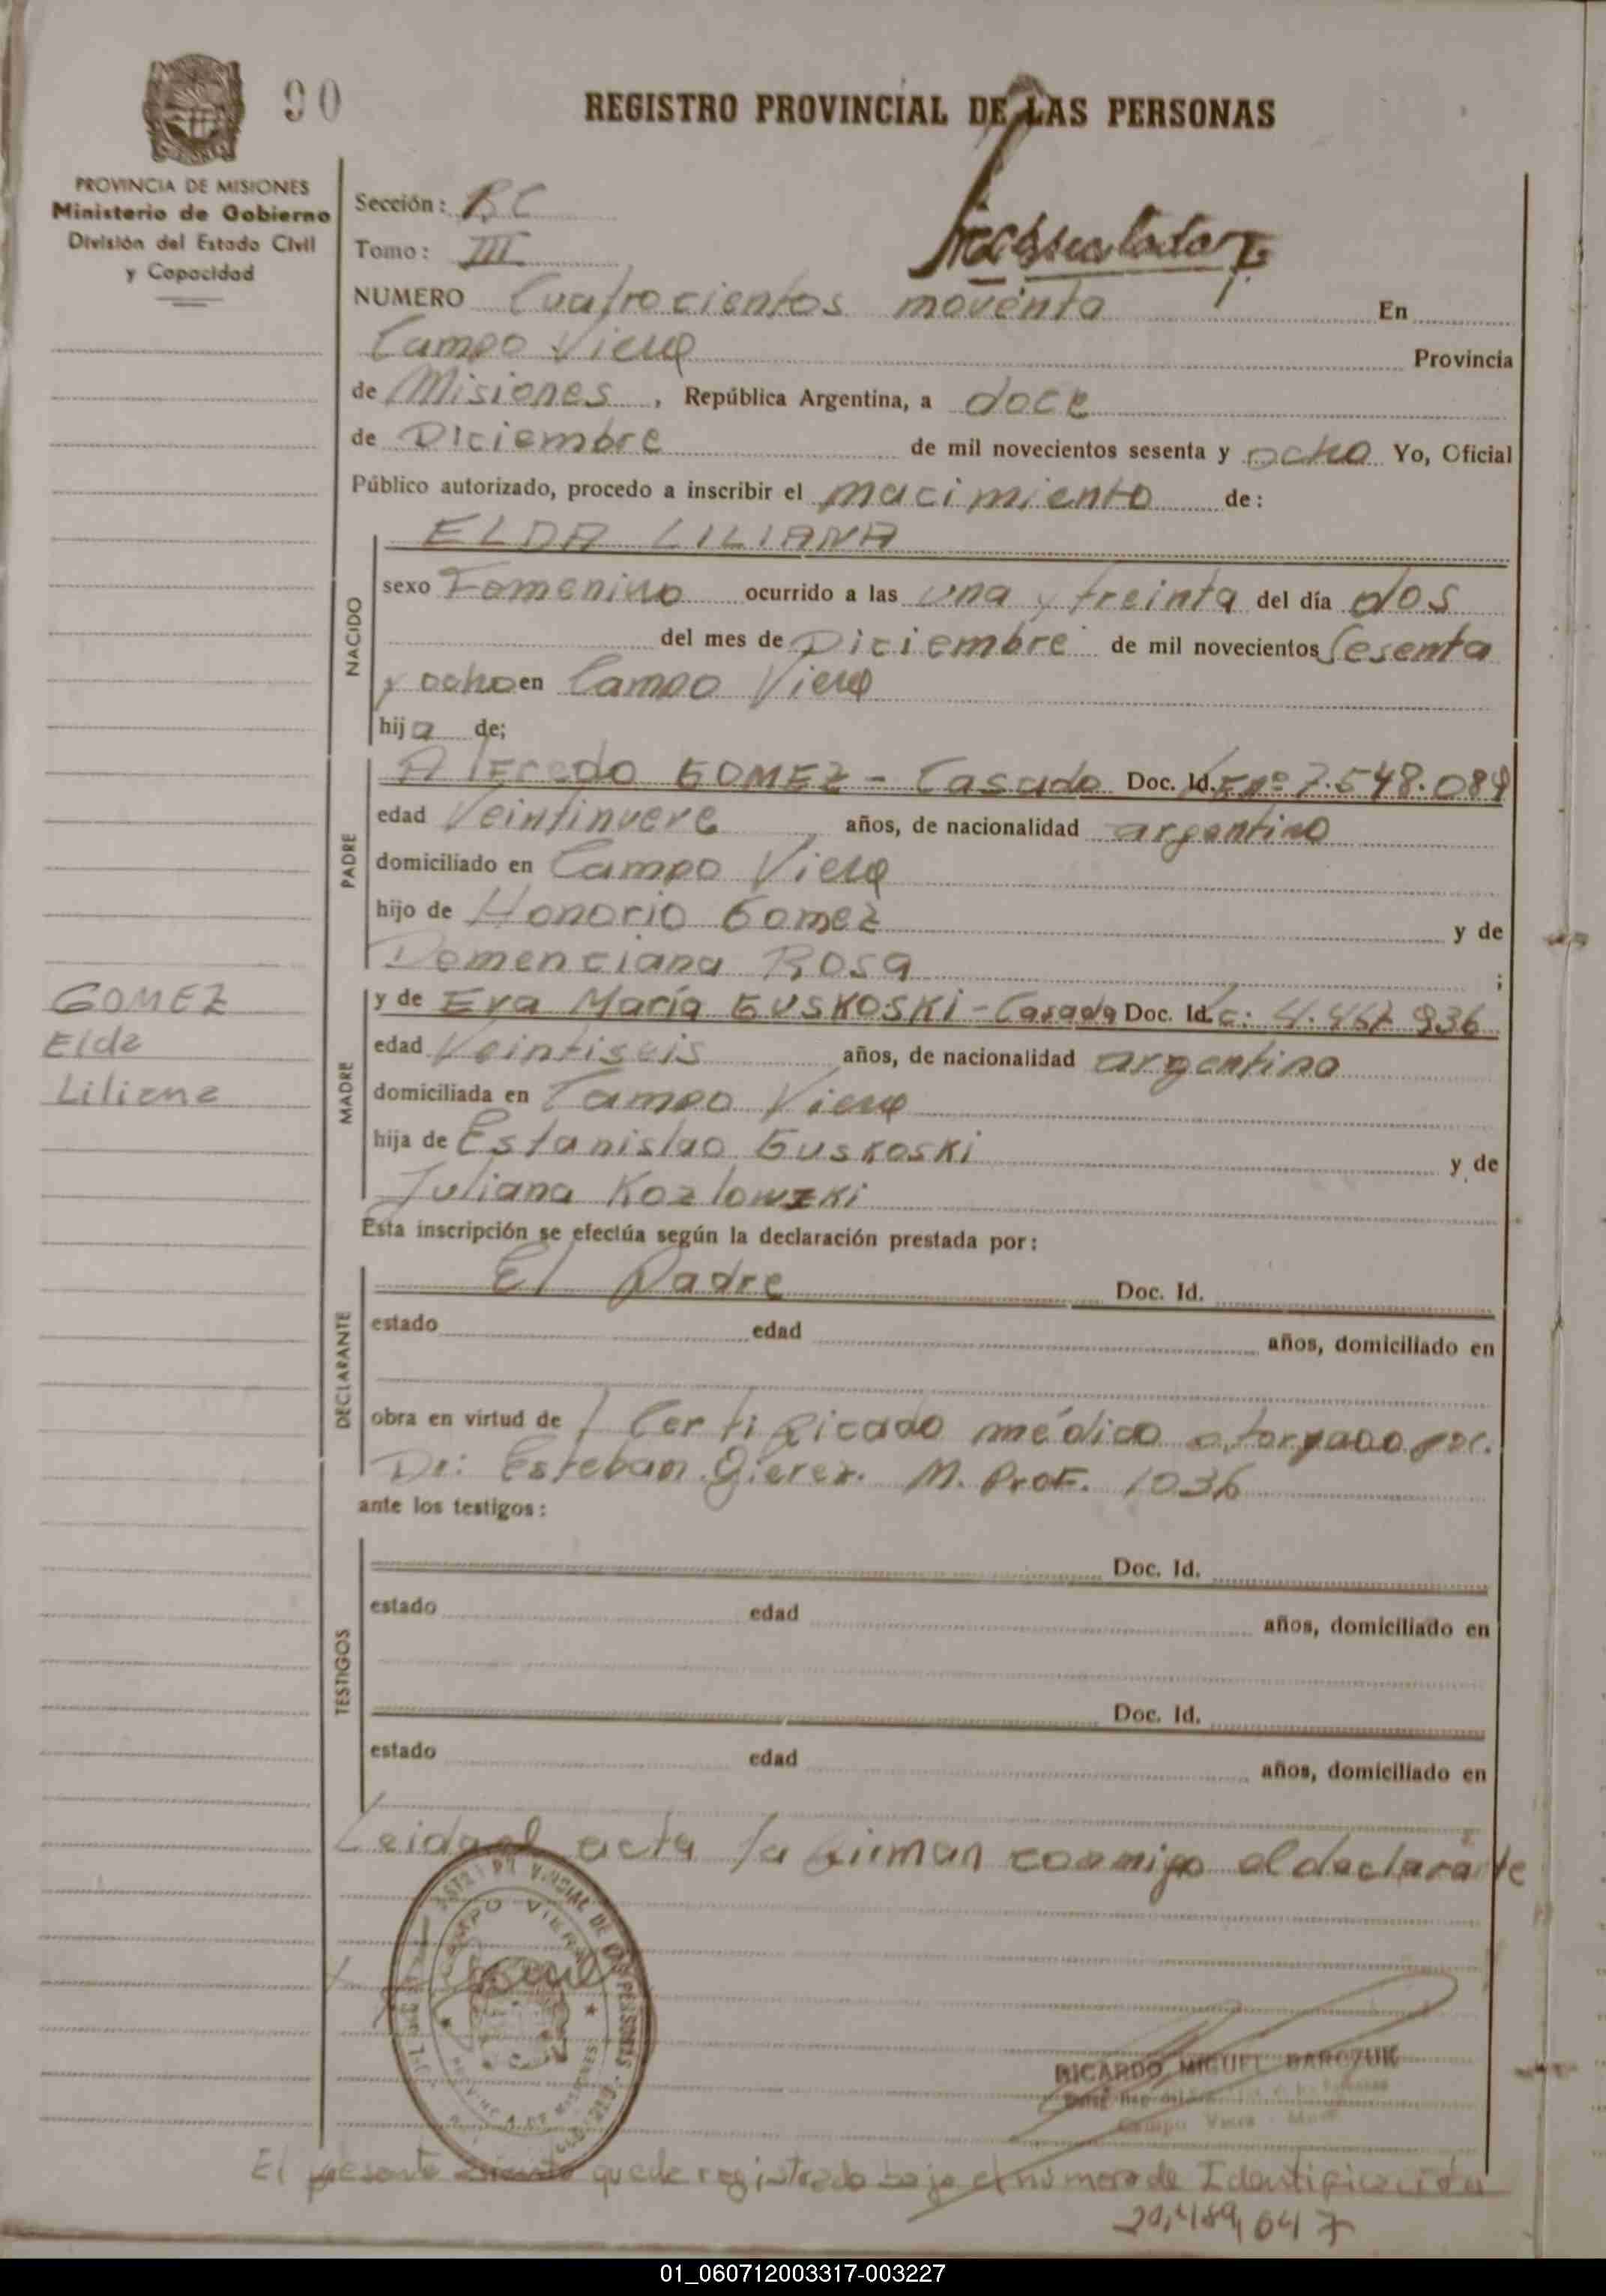 90
REGISTRO PROVINCIAL DE LAS PERSONAS
PROVINCIA DE MISIONES
Ministerio de Gobierno
División del Estado Civil
y Capacidad
Sección: BC
Tomo: III
NUMERO Cuatrocientos noventa En
Campo Viera Provincia
de Misiones, República Argentina, a doce
de Diciembre de mil novecientos sesenta y ocho Yo, Oficial
Público autorizado, procedo a inscribir el nacimiento de:
ELDA LILIANA
NACIDO
sexo Femenino ocurrido a las una y treinta del día dos
del mes de Diciembre de mil novecientos Sesenta
y ocho en Campo Viera
hija de;
PADRE
Alfredo GOMEZ - Casado Doc. Id. 7.548.084
edad Veintinueve años, de nacionalidad argentino
domiciliado en Campo Viera
hijo de Honorio Gomez y de
Demenciana Rosa ;
GOMEZ
Elda
Liliana
MADRE
y de Eva María GUSKOSKI - Casada Doc. Id. L.C: 936
edad Veintiseis años, de nacionalidad argentina
domiciliada en Campo Viera
hija de Estanislao Guskoski y de
Juliana Kozlowzki
Esta inscripción se efectúa según la declaración prestada por:
DECLARANTE
El Padre Doc. Id.
estado edad años, domiciliado en
obra en virtud de 1 Certificado médico otorgado por.
Dr: Esteban M. Prof. 1036
ante los testigos:
TESTIGOS
Doc. Id.
estado edad años, domiciliado en
Doc. Id.
estado edad años, domiciliado en
Leida el acta la firman conmigo el declarante
CAMPO VIERA
RICARDO MIGUEL BARCZUK
Campo Viera
El presente asiento queda registrado bajo el numero de Identificación
20,489,047
01_060712003317-003227